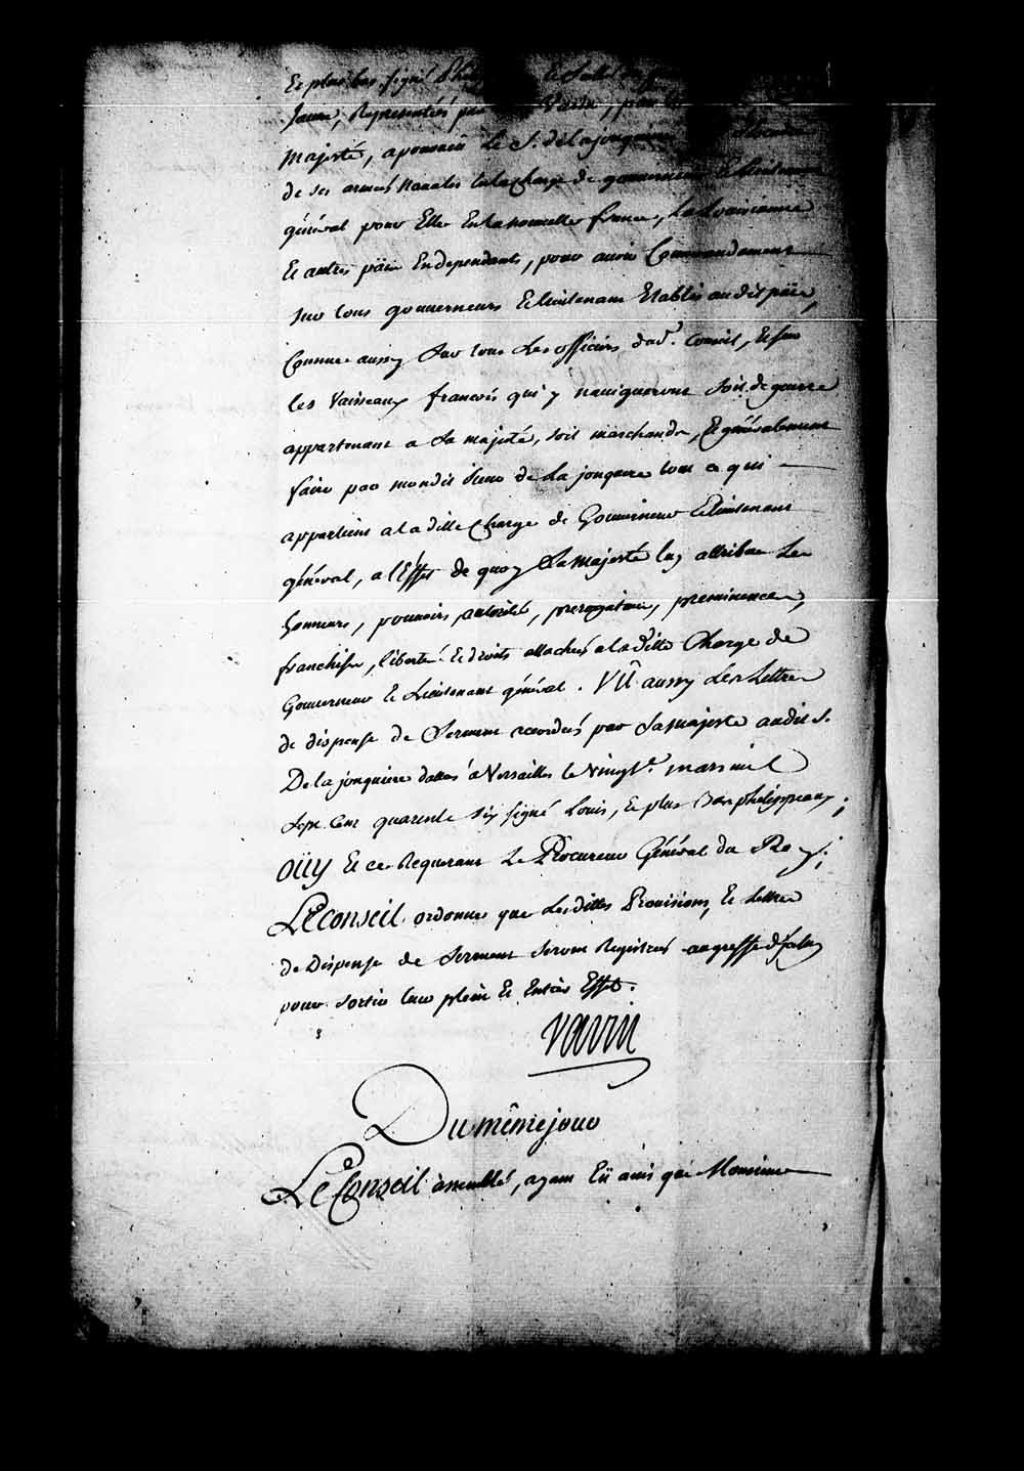 Et plus bas signé Et scellé
Jaune, Representées par Varin, par
majesté, a pourvû Le S. de la jonquiere
de ses armées navalles de la charge de gouverneur Et Lieutenant
général pour Elle En la nouvelle france, La Louisianne
Et autres païs En dependants, pour avoir Commandement
sur tous gouverneurs Et lieutenans Etablis audit païs,
Comme aussy Sur tous Les officiers dud. Conseil, Et sur
les Vaisseaux francois qui y navigueront soit de guerre
appartenant a Sa majesté, soit marchands, Et généralement
faire par mondit Sieur de La jonquiere tout ce qui
appartient a la ditte Charge de Gouverneur Et lieutenant
général, a l'Effet de quoy Sa Majesté luy attribue Les
honneurs, pouvoirs, autorités, prerogatives, preminences,
franchises, libertés Et droits attachés a la ditte Charge de
Gouverneur Et Lieutenant général. VÛ aussy Les Lettres
de dispense de Serment accordées par Sa Majesté audit S.
De la jonquiere dattées a Versailles le vingt. mars mil
Sept Cent quarente six signé Louis, Et plus Bas phelippeaux;
OÜY Et ce Requerant Le Procureur Général du Roy;
LE CONSEIL ordonne que Les dittes Provisions, Et Lettres
de Dispense de Serment Seront Registrées au greffe d'Iceluy
pour sortir leur plein Et Entier Effet.
Varin
Du même jour
LE Conseil assemblé, ayant Eü avis que Monsieur